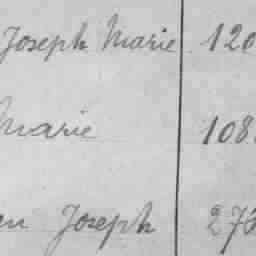 Joseph Marie 120
Marie 108
Joseph 273